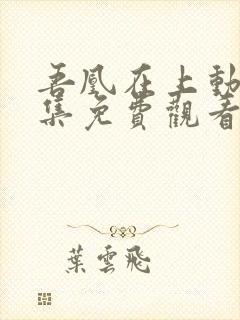 吾凰在上動
集免費觀看
葉雲飛